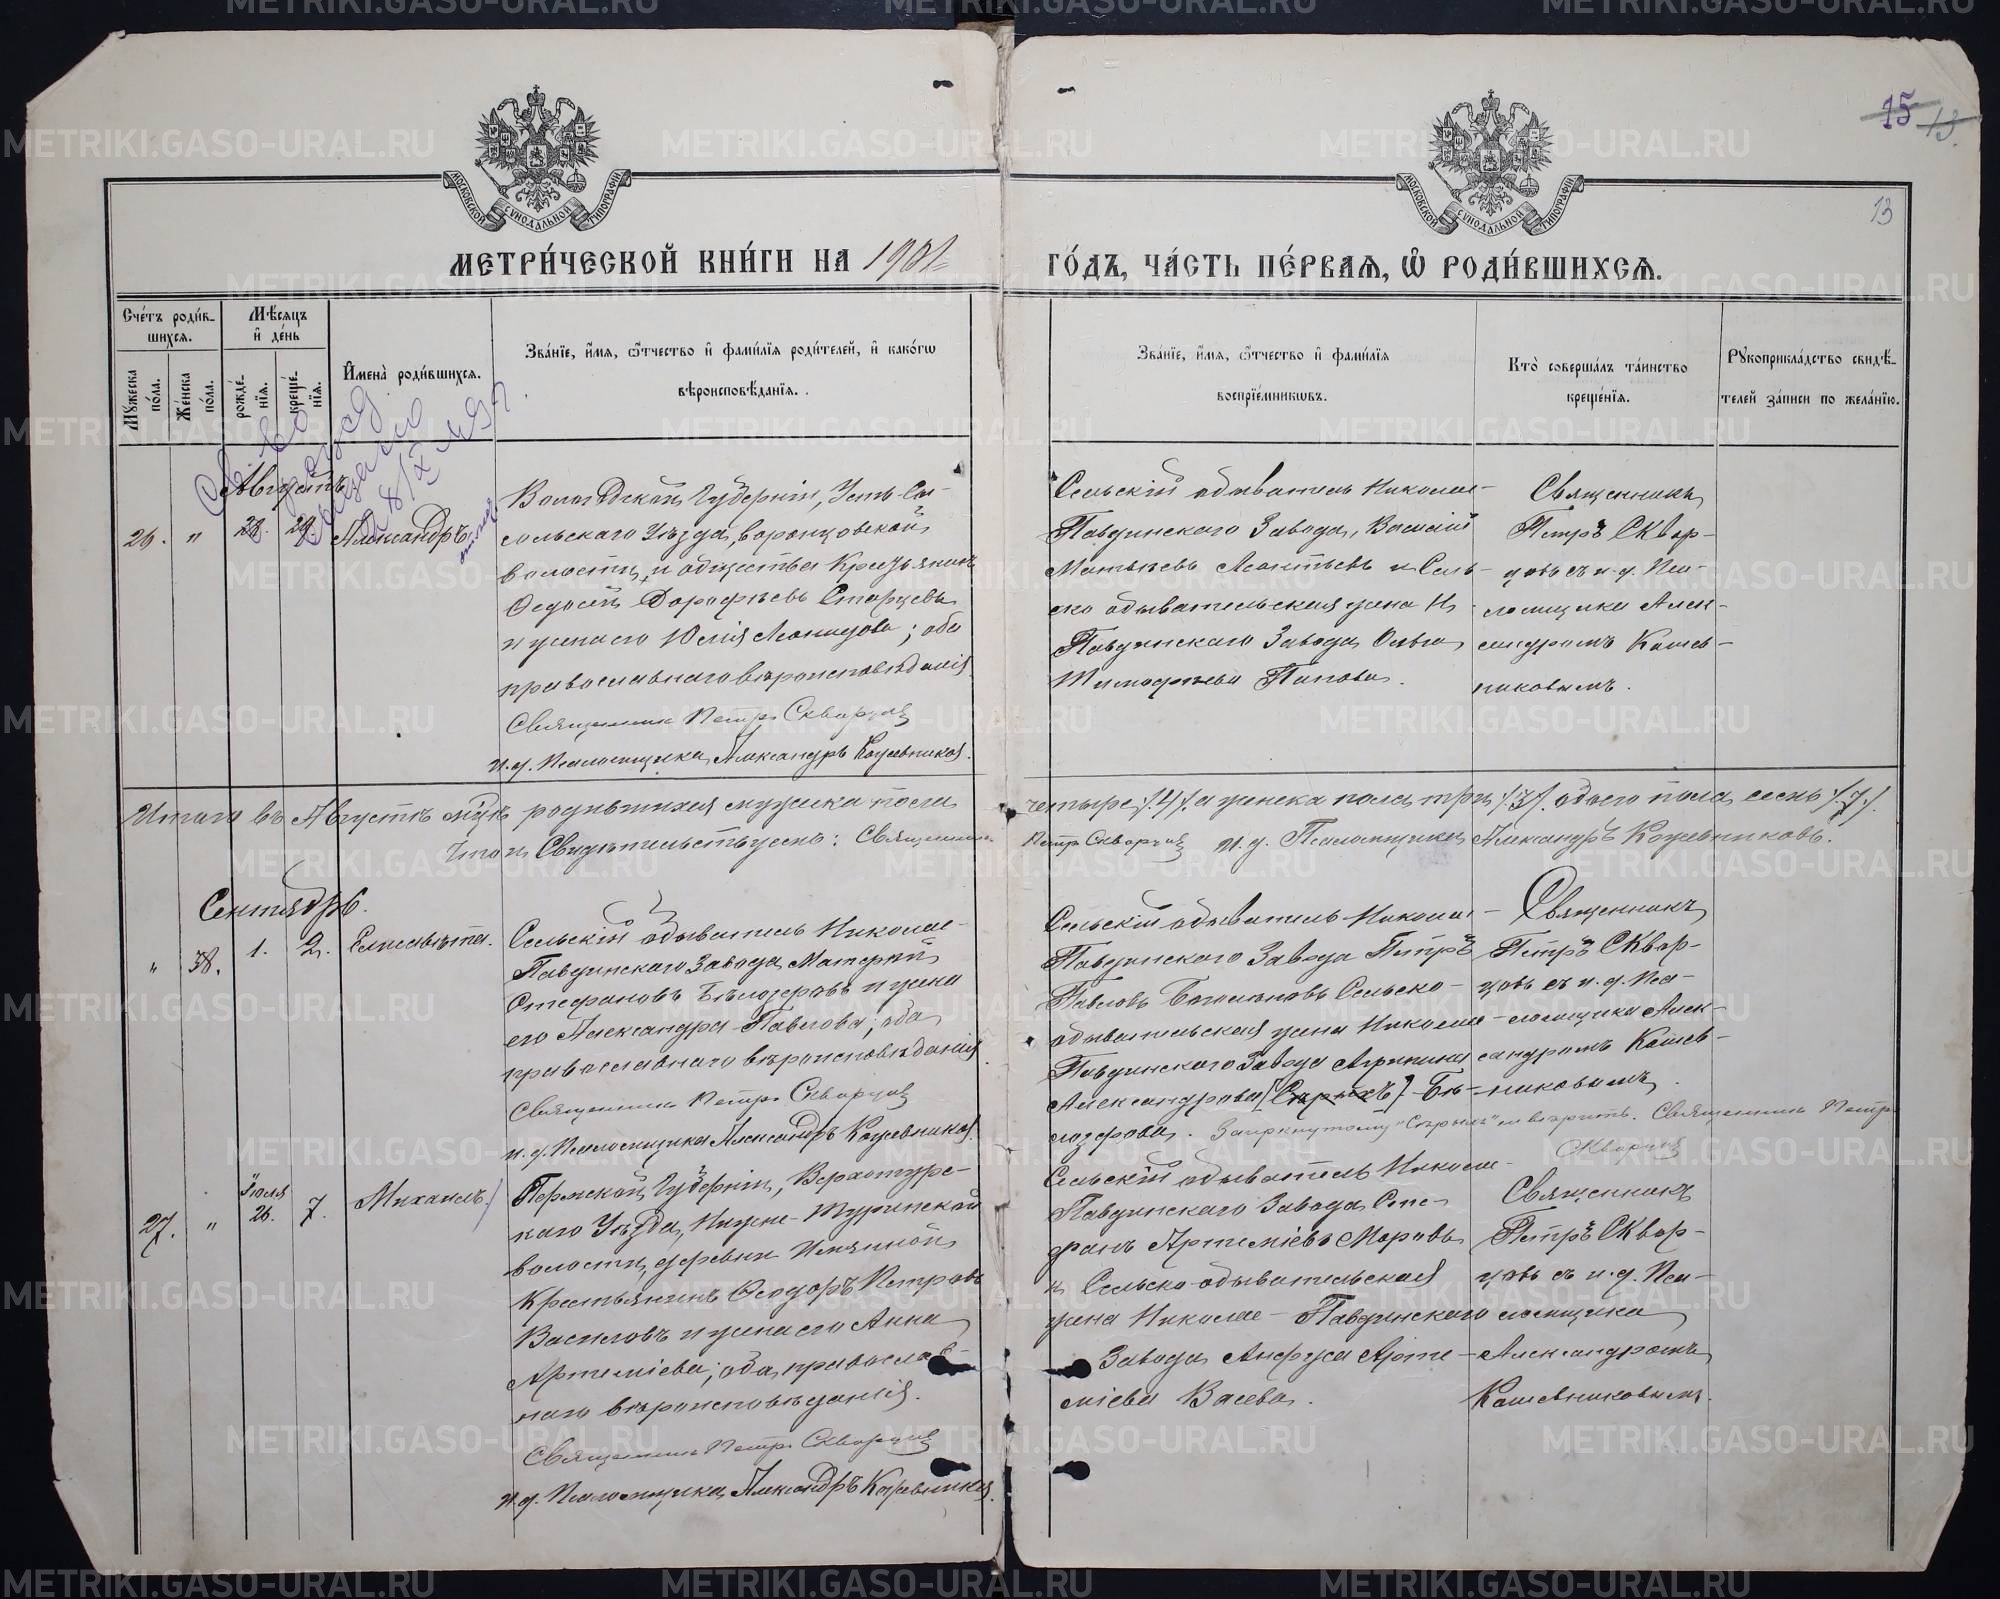 15 13.
13
МОСКОВСКОЙ СѴНОДАЛЬНОЙ ТИПОГРАФІИ
МОСКОВСКОЙ СѴНОДАЛЬНОЙ ТИПОГРАФІИ
МЕТРИ́ЧЕСКОЙ КНИ́ГИ НА 1901
ГО́ДЪ, ЧА́СТЬ ПЕ́РВАЯ, Ѡ РОДИ́ВШИХСЯ.
Сче́тъ роди́в-
шихся.
Мѣ́сяцъ
и де́нь
Му́жеска
по́ла.
Же́нска
по́ла.
рожде́-
нїя.
креще́-
нїя.
Имена̀ роди́вшихся.
Зва́нїе, и́мя, ѻ́тчество и фами́лїя роди́телей, и како́гѡ
вѣроисповѣ́данїя.
Зва́нїе, и́мя, ѻ́тчество и фами́лїя
воспрїе́мникωвъ.
Кто̀ соверша́лъ та́инство
креще́нїя.
Рꙋкоприкла́дство свидѣ́-
телей за́писи по жела́нїю.
Августъ
26. " 28. 29. Александръ
Вологодской Губерніи, Усть-Сы-
сольскаго Уѣзда, Воронцовской
волости и общества Крестьянинъ
Ѳедосій Дороѳѣевъ Старцевъ
и жена его Юлія Леонидова; оба
православнаго вѣроисповѣданія
Священник Петръ Скворцов
и. д. Псаломщика Александръ Кожевников.
Сельскій обыватель Николае-
Павдинскаго Завода, Василій
Матвѣевъ Леонтьевъ и Сель-
ско обывательская жена Н.
Павдинскаго Завода Ольга
Тимофѣева Попова.
Священникъ
Петръ Сквор-
цовъ съ и. д. Пса-
ломщика Алек-
сандромъ Кожев-
никовымъ.
Итого въ Августѣ мцѣ родившихся мужска пола четыре /.4/. а женска пола три /.3/. обоего пола семь /.7./.
Что и Свидѣтельствуемъ: Священник Петръ Скворцов и. д. Псаломщика Александръ Кожевниковъ.
Сентябрь.
" 38. 1. 2. Елисавета.
Сельскій обыватель Николае-
Павдинскаго Завода Матѳей
Стефановъ Бѣлозеровъ и жена
его Александра Павлова; оба
православнаго вѣроисповѣданія.
Священник Петръ Скворцов
и. д. Псаломщика Александръ Кожевников.
Сельскій обыватель Николае-
Павдинскаго Завода Петръ
Павловъ Сельско-
обывательская жена Николае-
Павдинскаго Завода Агрипина
Александрова [Сѣрыхъ] Бѣ-
лозерова. Зачеркнутому "Сѣрыхъ" не вѣрить. Священник Петръ
Скворцов
Священникъ
Петръ Сквор-
цовъ съ и. д. Пса-
ломщика Алек-
сандромъ Кожев-
никовымъ.
Іюля
27. " 26. 7. Михаилъ
Пермской Губерніи, Верхотурс-
каго Уѣзда, Нижне-Туринской
волости, деревни
Крестьянинъ Ѳеодоръ Петровъ
Василовъ и жена его Анна
Артеміева; оба православ-
наго вѣроисповѣданія.
Священник Петръ Скворцов
и. д. Псаломщика Александръ Кожевников.
Сельскій обыватель Николае-
Павдинскаго Завода Сте-
фанъ Артеміевъ Моровъ
и Сельско-обывательская
жена Николае-Павдинскаго
Завода Анфуса Арте-
міева Васева.
Священникъ
Петръ Сквор-
цовъ съ и. д. Пса-
ломщика
Александромъ
Кожевниковымъ.
METRIKI.GASO-URAL.RU